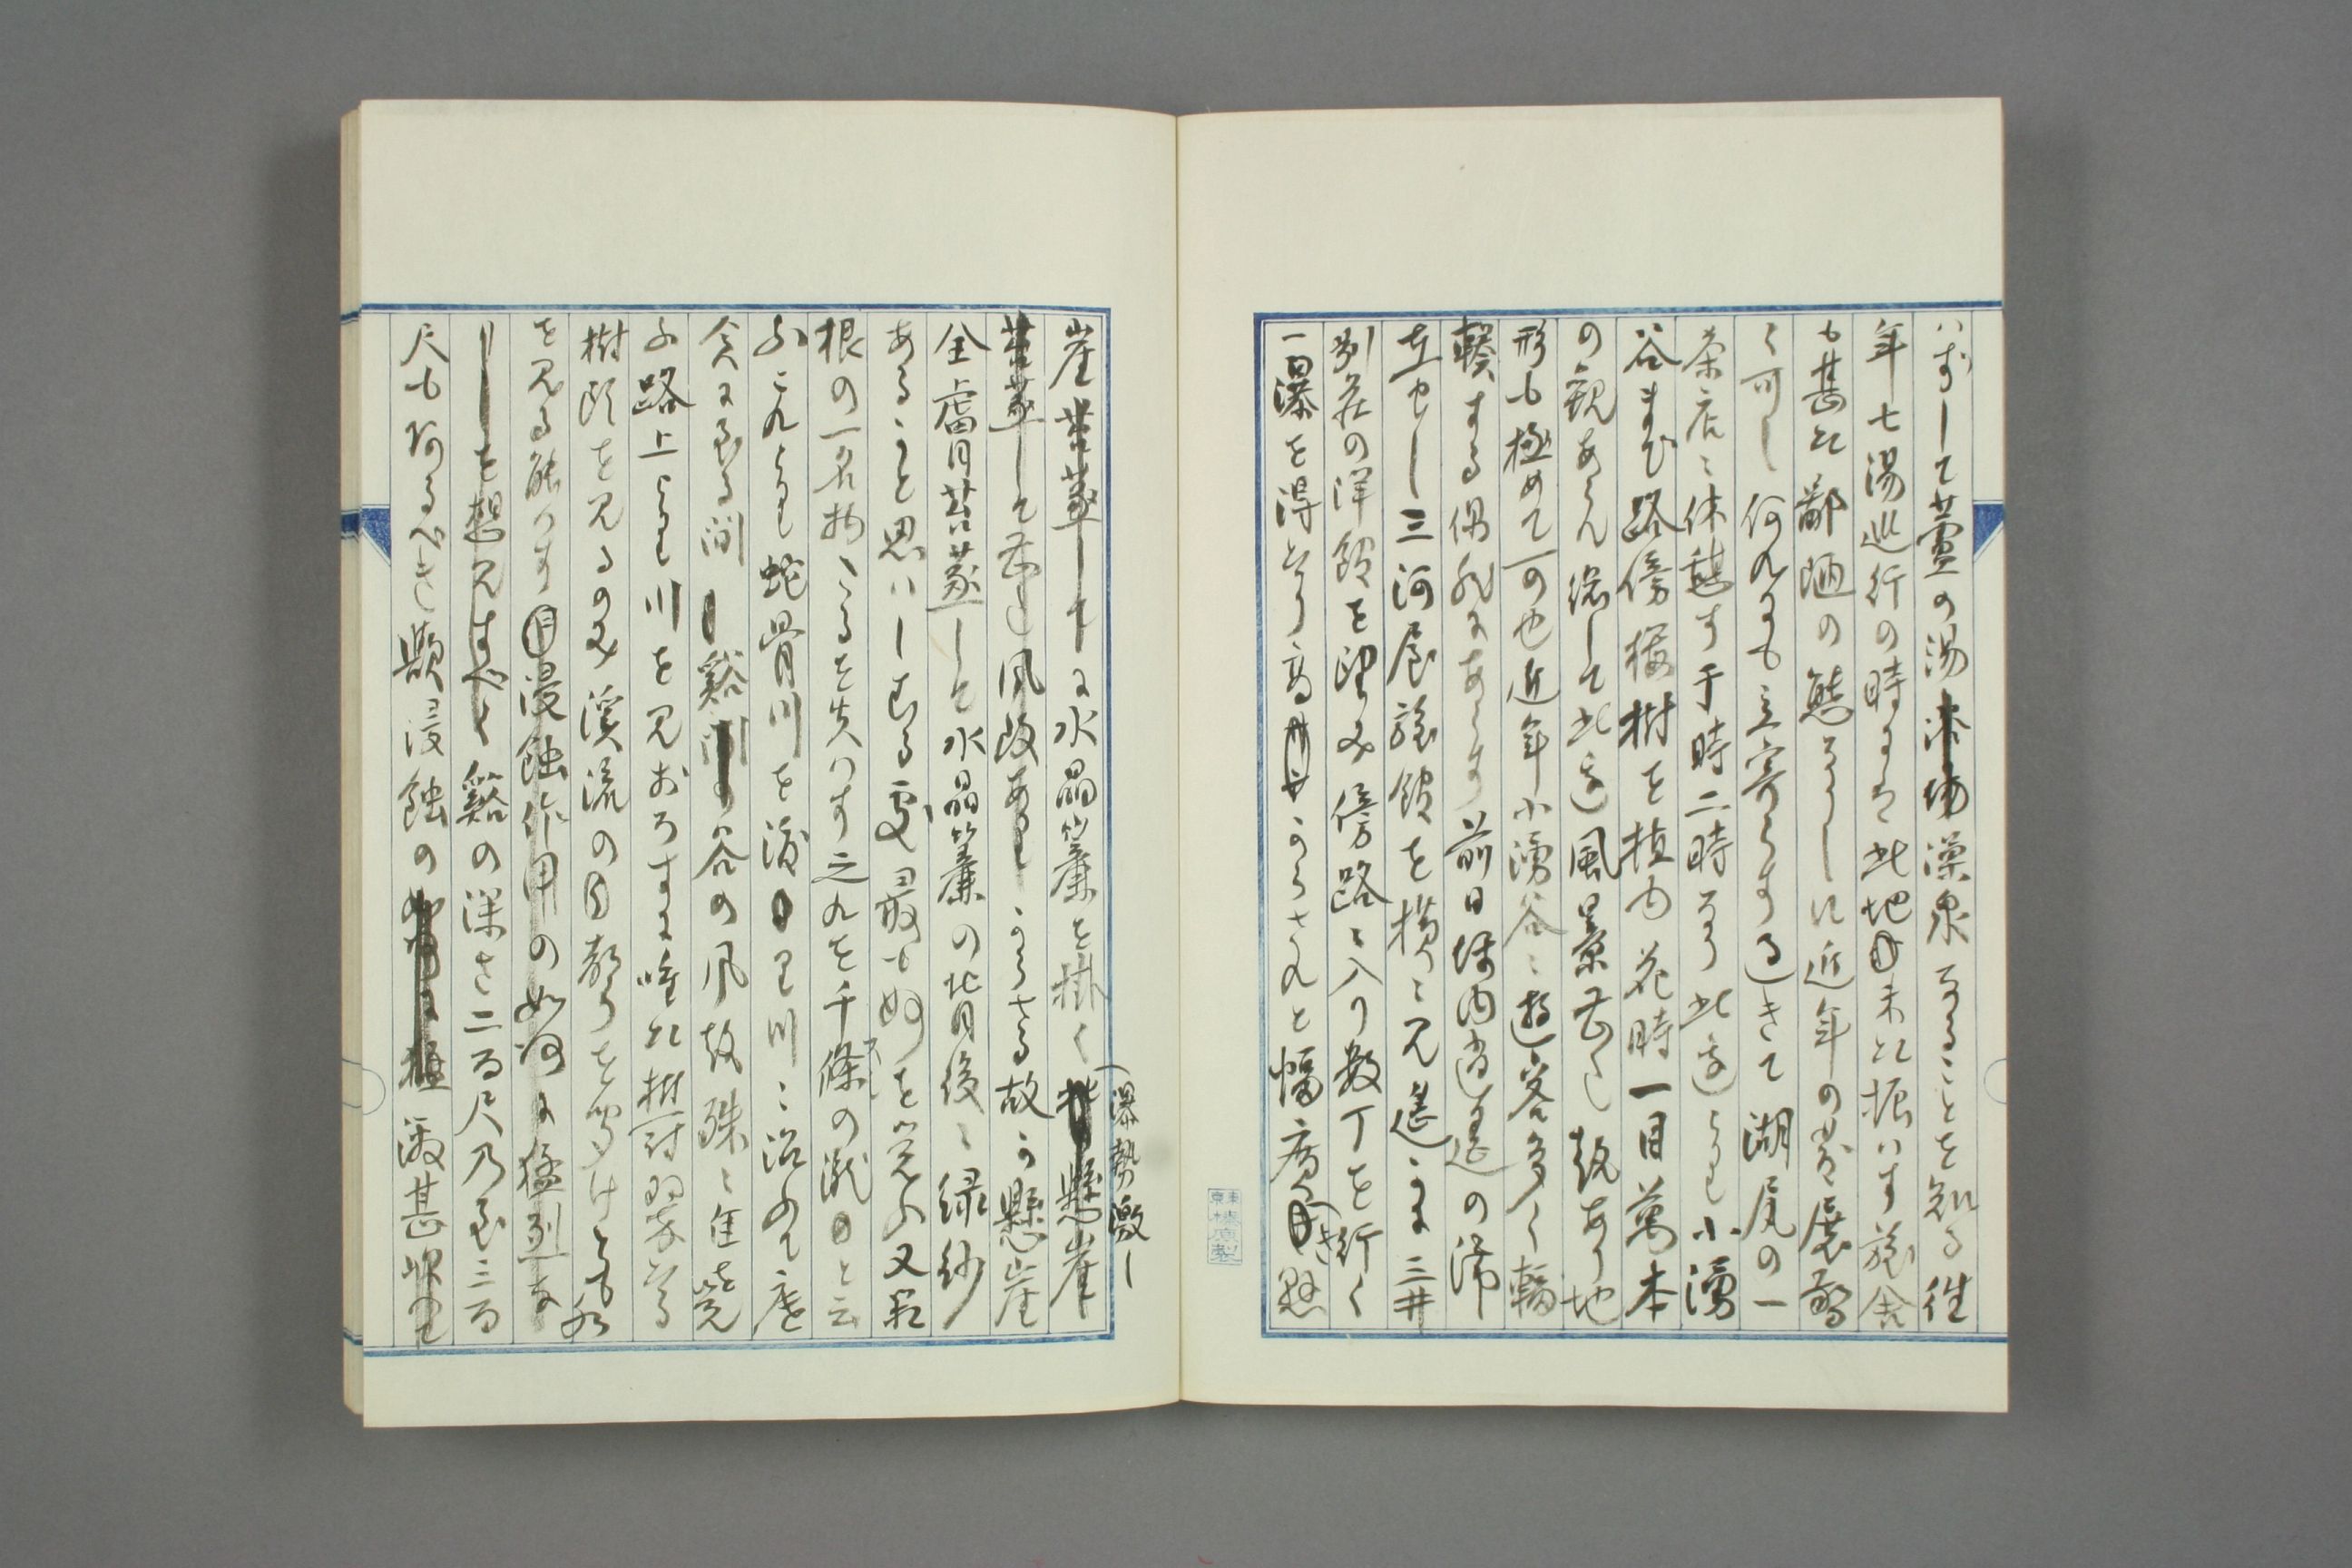 はずして蘆の湯温泉なることを知る往
年七湯巡行の時には此地未だ振はず旅舎
も甚だ鄙陋の態なりしに近年の発展驚
く可し何れにも立寄らず過きて湖尻の一
茶店に休憩す于時二時なり此辺より小湧
谷まで路傍桜樹を植ゆ花時一目萬本
の観あらん総して此辺風景甚だ致あり地
形も極めて可也近年小湧谷に遊客多く輻
輳する偶然にあらず前日坪内逍遥の滞
在せし三河屋旅館を横に見遥かに三井
別荘の洋館を望み傍路に入り数丁を行く
一瀑を得たり高からされと幅廣き懸
崖に水晶簾を掛く瀑勢激し懸崖
して甚だ風致あり からさる故か懸崖
全膚青苔蒸して水晶簾の背後に緑紗
あるかと思はしむる処最も妙を覚ふ又箱
根の一名物たるを失はす之れを千條の瀧と云
ふこれより蛇骨川を渡り川に沿ふて底
倉に至る間 谿谷の風致殊に佳を覚
ふ路上より川を見おろすに唯だ樹討翠たる
樹頭を見るのみ渓流の音を聞けとも水
を見る能はす浸蝕作用の如何に猛烈な
りしを想見すべく谿の深さ二百尺乃至三百
尺もあるべき歟浸蝕の猛激甚